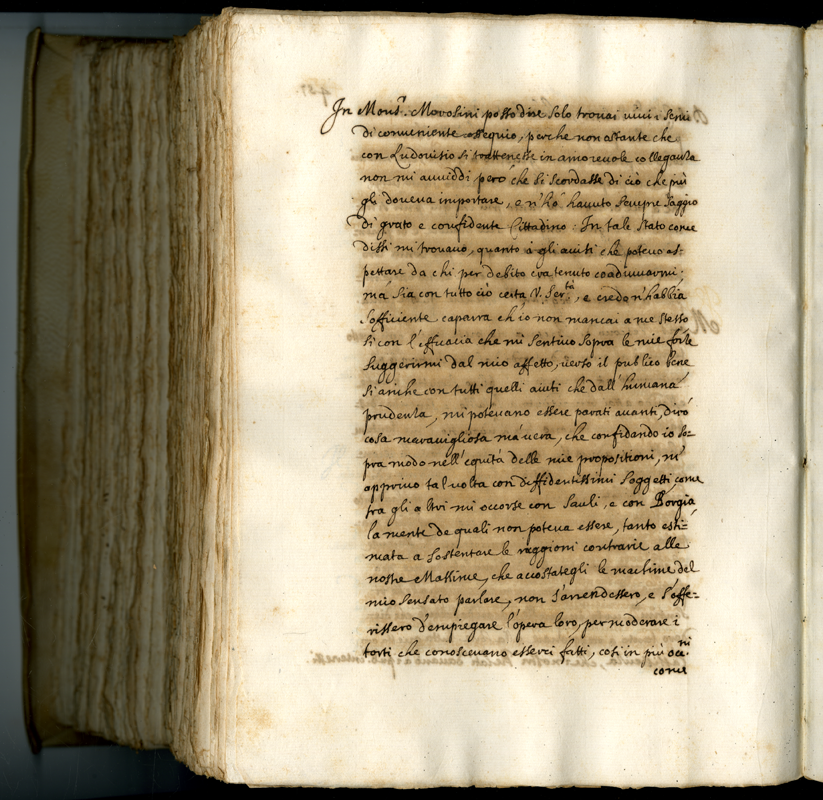 In Mons.r Morosini posso dire solo trovai vivi i semi
di conveniente ossequio, perche non ostante che
con Ludovisio si trattenesse in amorevole colleganza
non mi avviddi però che si scordasse di ciò che più
gli doveva importare, e n'hò havuto sempre saggio
di grato e confidente Cittadino: In tale stato come
dissi mi trovavo, quanto à gli aiuti che potevo as-
pettare da chi per debito era tenuto coadiuvarmi;
mà sia con tutto ciò certa V. Ser.tà, e crede n'habbia
sofficiente caparra ch'io non mancai a me stesso
si con l'efficacia che mi sentivo sopra le mie forze
suggerirmi dal mio affetto, verso il publico bene
si anche con tutti quelli aiuti che dall'humana
prudenza, mi potevano essere parati avanti, dirò
cosa maravigliosa mà vera, che confidando io so=
pra modo nell'equità delle mie propositioni, m'
apprivo tal volta con diffidentissimi soggetti, come
tra gli altri mi occorse con Sauli, e con Borgia
la mente de quali non poteva essere, tanto osti-
nata a sostentare le raggioni contrarie alle
nostre Massime, che accostategli le machine del
mio sensato parlare, non s'arrendessero, e s'offe-
rissero d'empiegare l'opera loro, per moderare i
torti che conoscevano esserci fatti, così in più occ.ni
come